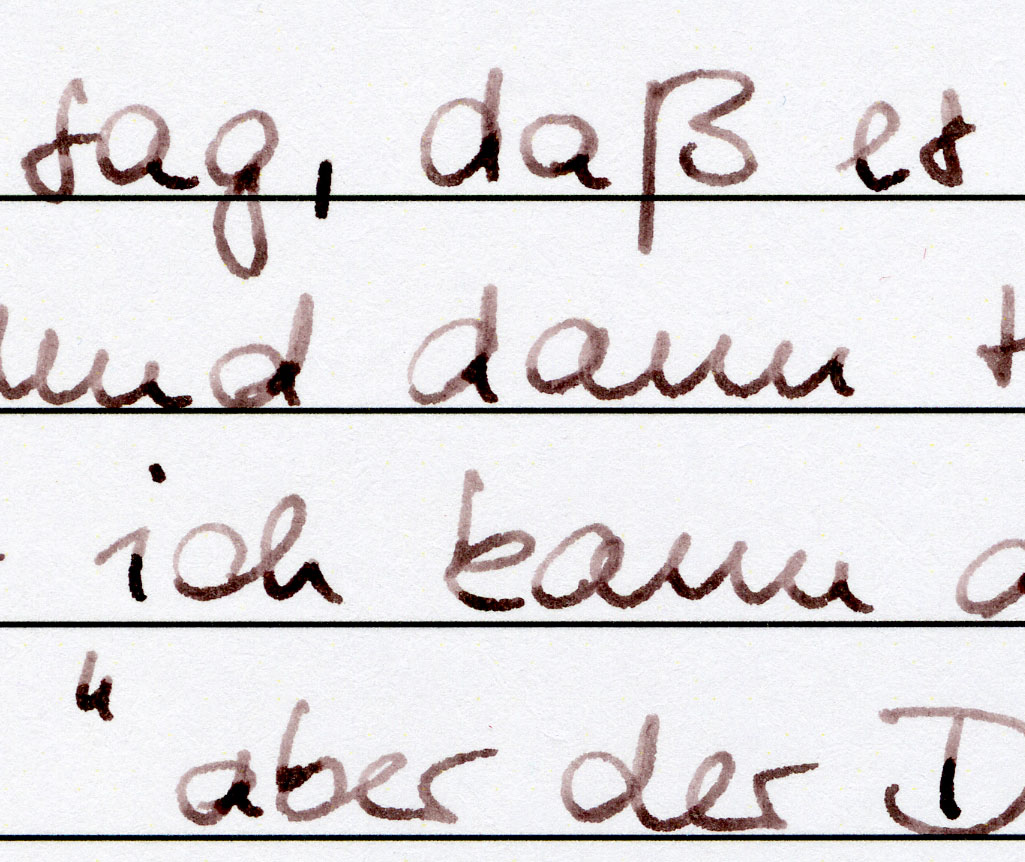 sag, daß es
und dann
ich kann
" aber der D